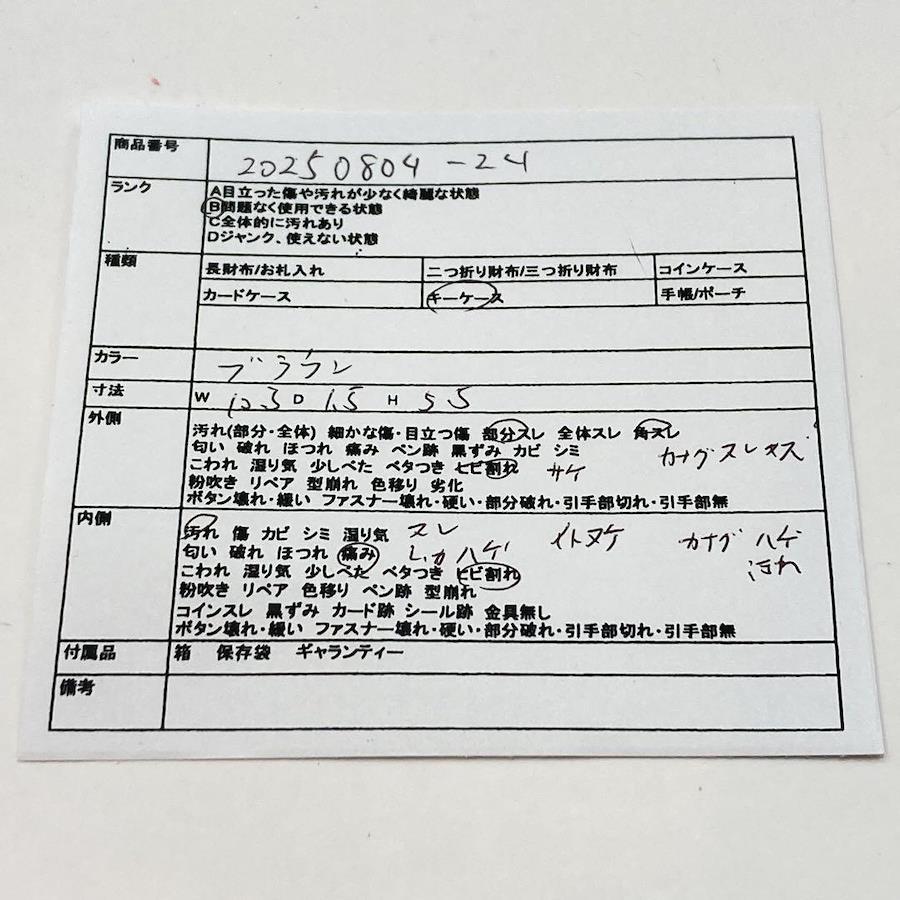 商品番号 20250804-24
ランク
A目立った傷や汚れが少なく綺麗な状態
B問題なく使用できる状態
C全体的に汚れあり
Dジャンク、使えない状態
種類
長財布/お札入れ 二つ折り財布/三つ折り財布 コインケース
カードケース キーケース 手帳/ポーチ
カラー ブラウン
寸法 W 10.3 D 1.5 H 5.5
外側
汚れ(部分・全体) 細かな傷・目立つ傷 部分スレ 全体スレ 角スレ
匂い 破れ ほつれ 痛み ペン跡 黒ずみ カビ シミ カナグスレキズ
こわれ 湿り気 少しべた ベタつき ヒビ割れ サケ
粉吹き リペア 型崩れ 色移り 劣化
ボタン壊れ・緩い ファスナー壊れ・硬い・部分破れ・引手部切れ・引手部無
内側
汚れ 傷 カビ シミ 湿り気 スレ イトヌケ カナグ ハゲ
匂い 破れ ほつれ 痛み ハゲ 汚れ
こわれ 湿り気 少しべた ベタつき ヒビ割れ
粉吹き リペア 色移り ペン跡 型崩れ
コインスレ 黒ずみ カード跡 シール跡 金具無し
ボタン壊れ・緩い ファスナー壊れ・硬い・部分破れ・引手部切れ・引手部無
付属品 箱 保存袋 ギャランティー
備考